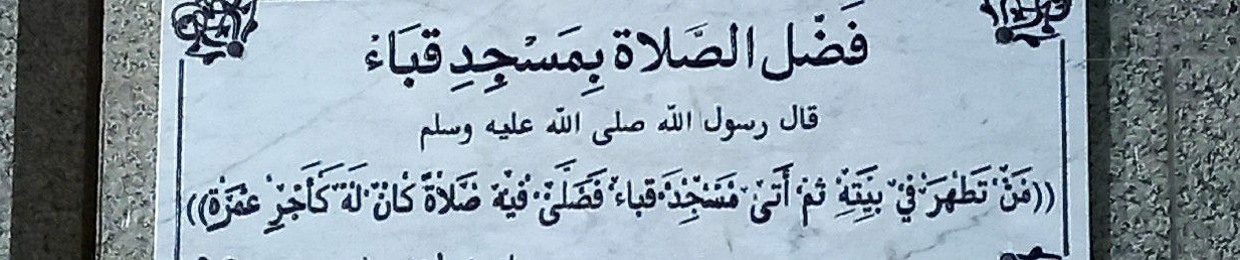 فَضْل الصَّلاة بِمَسْجِدِ قبَاءْ
قال رسول الله صلى الله عليه وسلم
((مَنْ تَطَهَرَ فيْ بيَتِهِ ثمْ أَتَىْ مَسْجْدَ قباءْ فَصَلَّىْ فيْهَ صَلاْةً كَانْ لَهَ كَأَجْرِ عُمْرَةٍ))